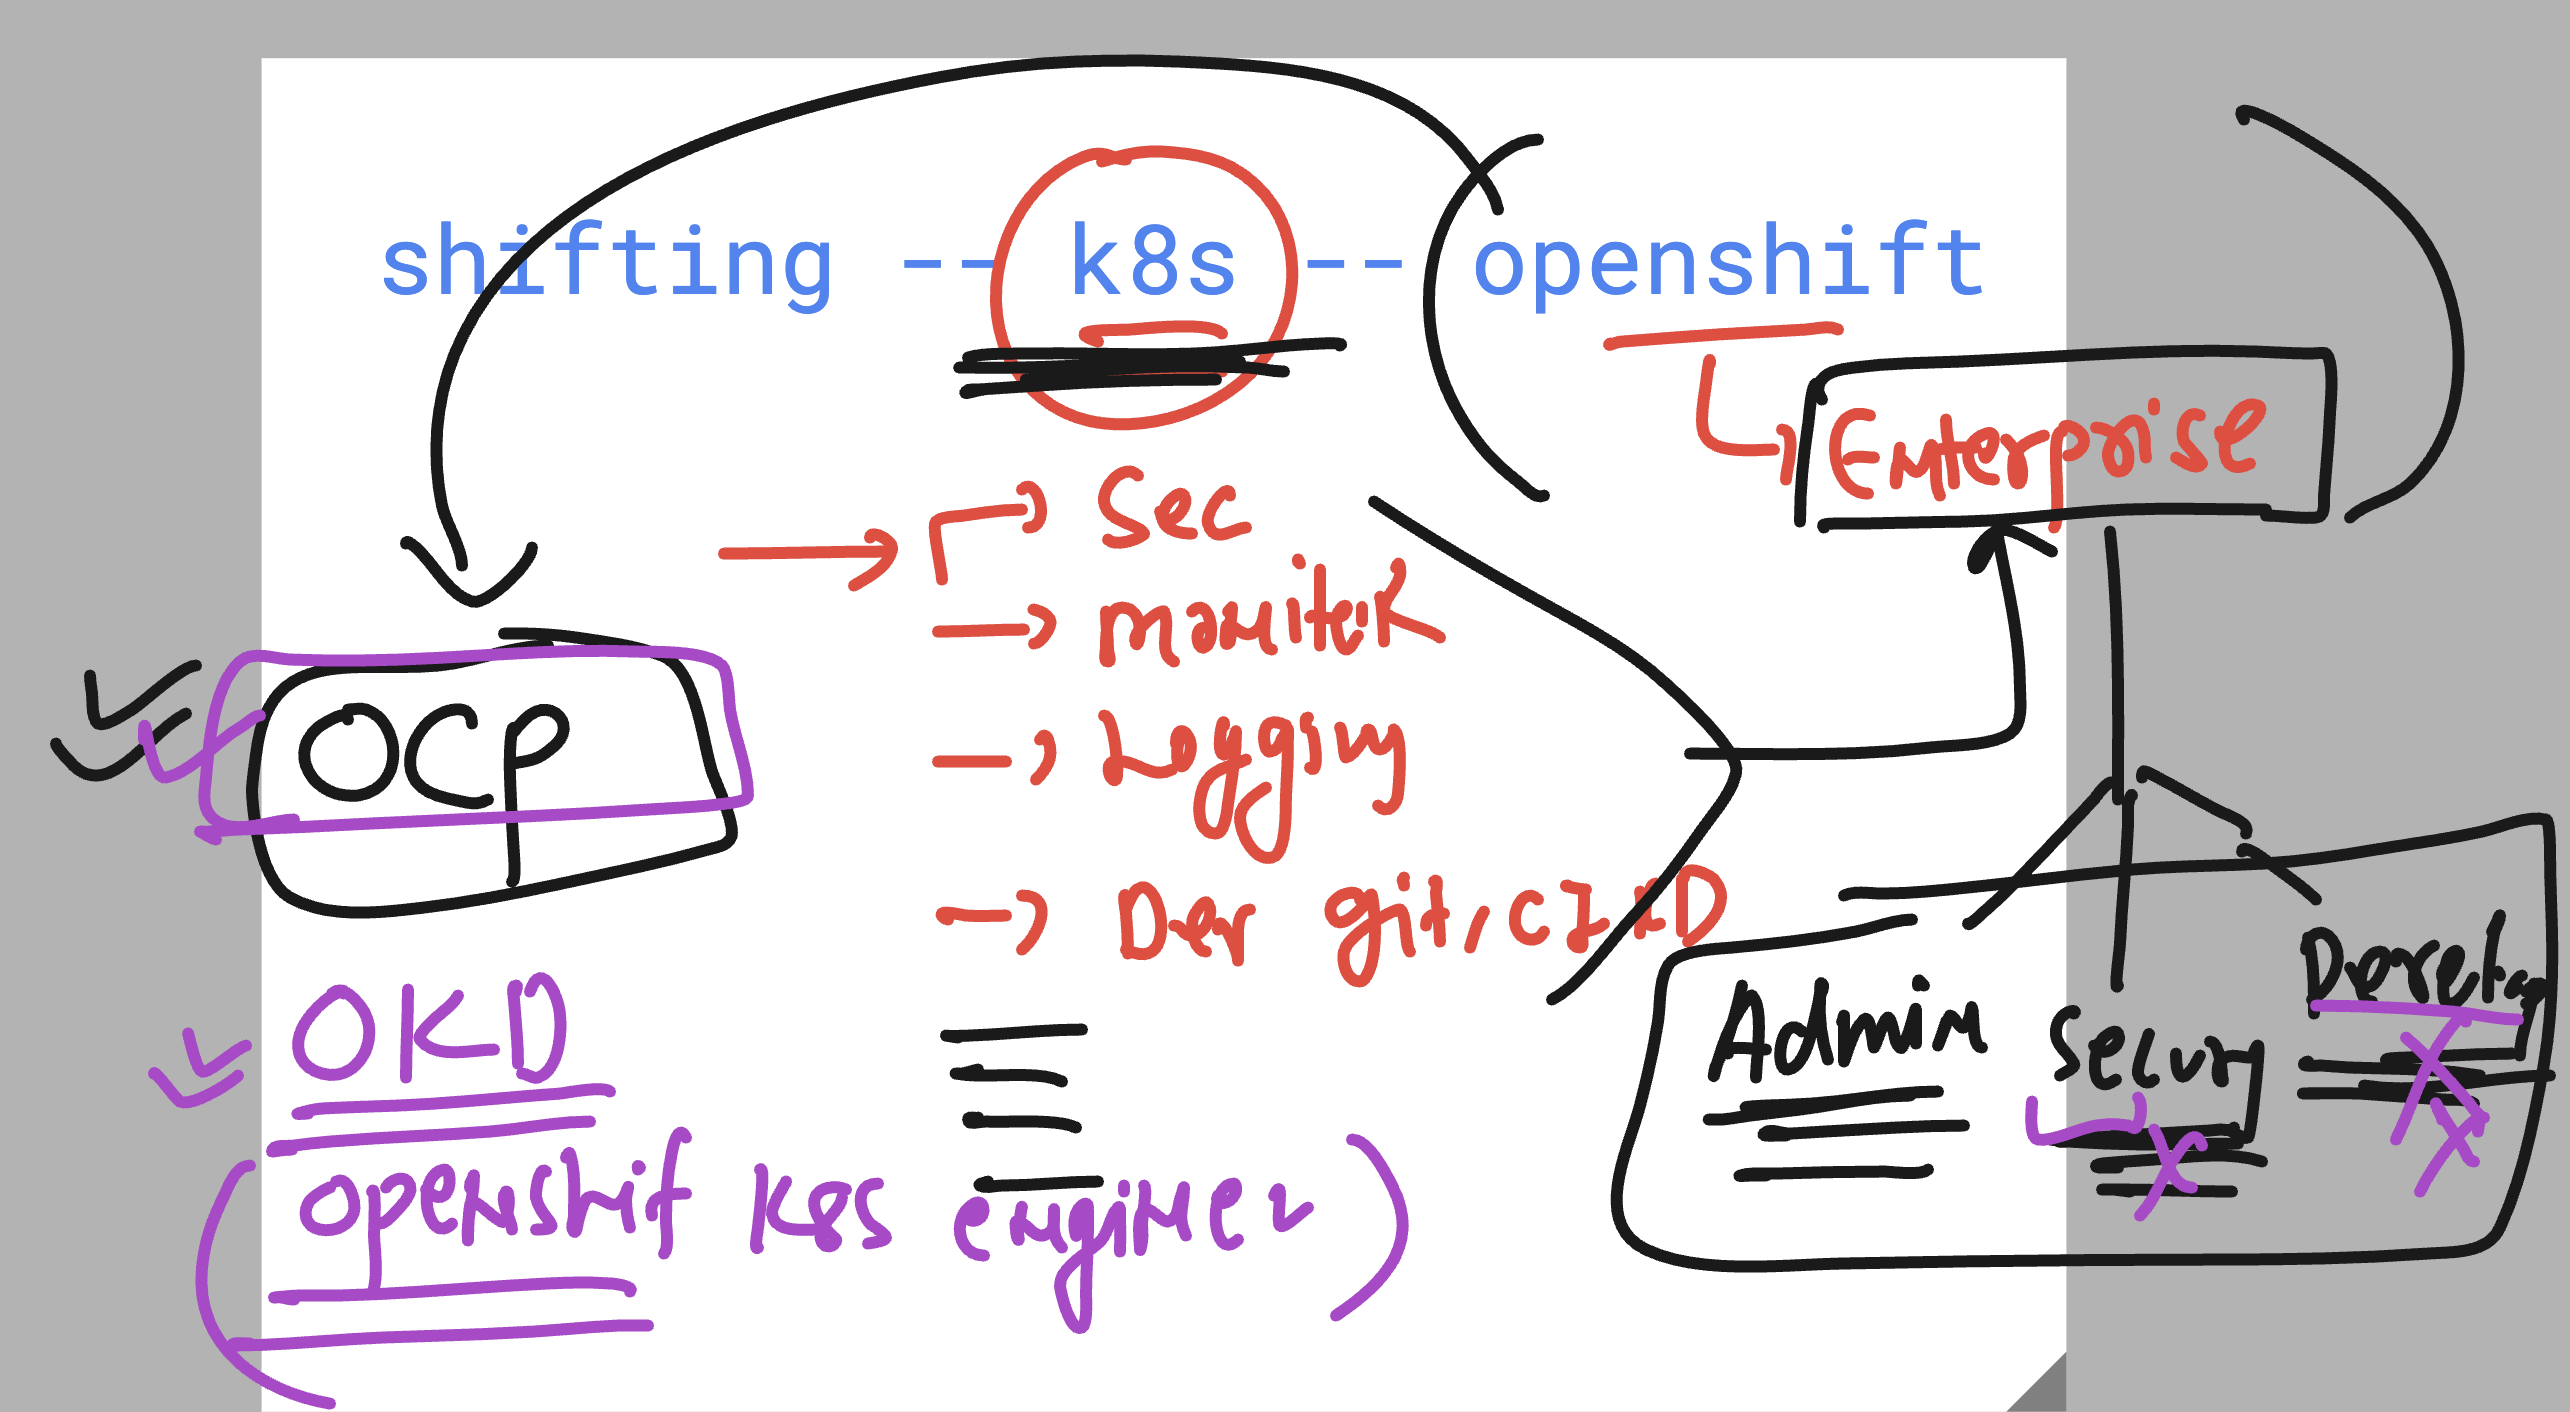 shifting -- k8s -- openshift
Enterprise
Sec
moniter
Logging
Dev git, CI/CD
OCP
OKD
openshif k8s engine
Admin
Secury